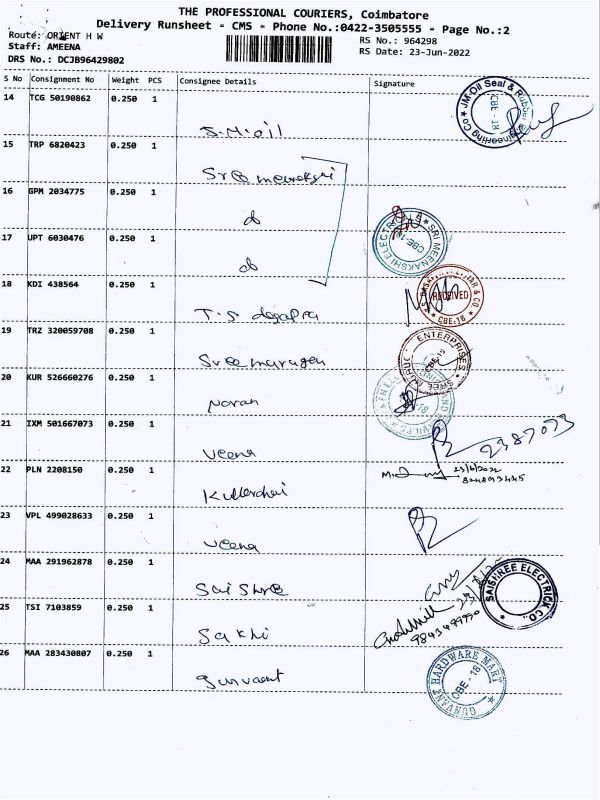 THE PROFESSIONAL COURIERS, Coimbatore
Delivery Runsheet - CMS - Phone No.:0422-3505555 - Page No.:2
Route: ORIENT H W
Staff: AMEENA
DRS No.: DCJB96429802
RS No.: 964298
RS Date: 23-Jun-2022
S No Consignment No Weight PCS Consignee Details Signature
14 TCG 50190862 0.250 1
S.M.oil
JM-Oil Seal & Rubber Engineering Co CBE-18
15 TRP 6820423 0.250 1
Sree
16 GPM 2034775 0.250 1
do
17 UPT 6030476 0.250 1
do
SRI MEENAKSHI ELECTRICALS CBE-18
18 KDI 438564 0.250 1
T.S
& CO. RECEIVED CBE-18
19 TRZ 320059708 0.250 1
Sree murugan
SREE ENTERPRISES
20 KUR 526660276 0.250 1
21 IXM 501667073 0.250 1
Veena
2387073
22 PLN 2208150 0.250 1
23/6/2022
23 VPL 499028633 0.250 1
Veena
24 MAA 291962878 0.250 1
Sai Shree
SAISHREE ELECTRICK CO.
25 TSI 7103859 0.250 1
Sakhi
26 MAA 283430807 0.250 1
Gunvant
GUNVANT HARDWARE MART CBE-18